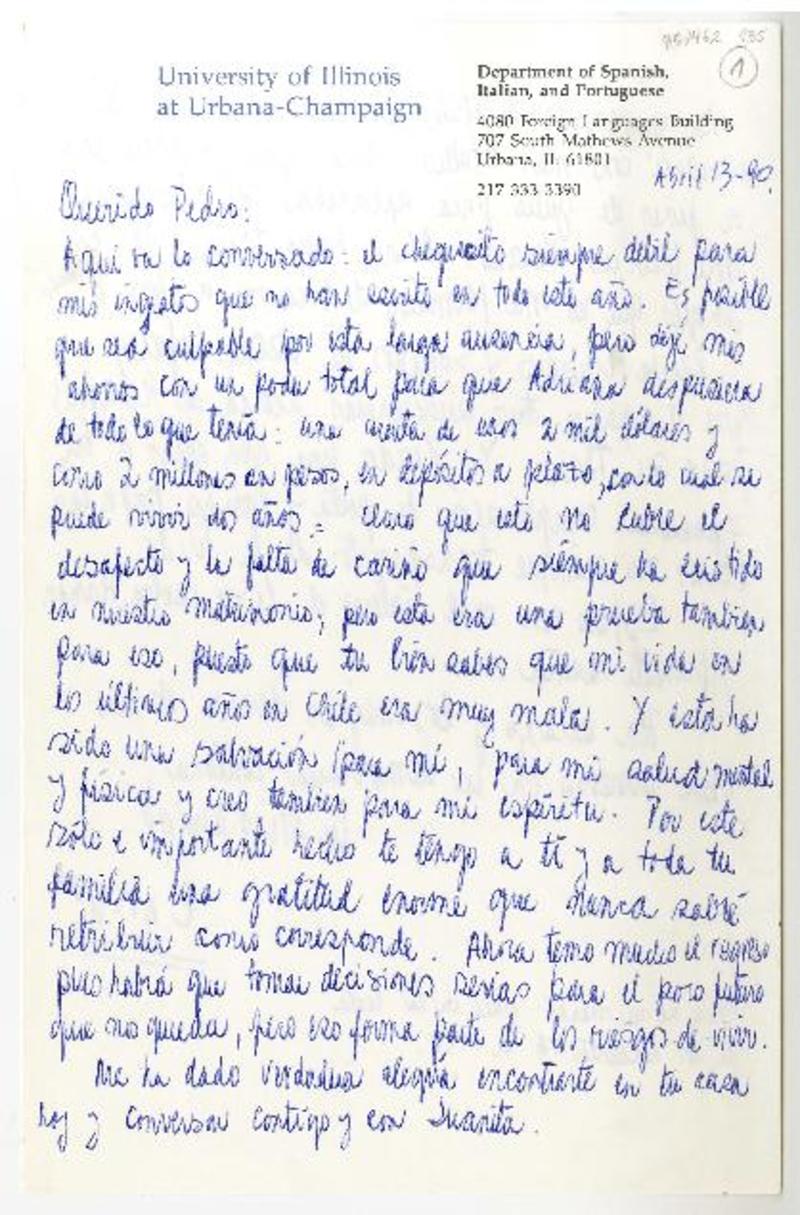 1
University of Illinois
at Urbana-Champaign
Department of Spanish,
Italian, and Portuguese
4080 Foreign Languages Building
707 South Mathews Avenue
Urbana, IL 61801
217 333-3390
Abril 13-90.
Querido Pedro:
Aquí va lo conversado: el chequecito siempre débil para
mis ingratos que no han escrito en todo este año. Es posible
que sea culpable por esta larga ausencia, pero dejé mis
ahorros con un poder total para que Adriana dispusiera
de todo lo que tenía: una cuenta de unos 2 mil dólares y
como 2 millones en pesos, en depósitos a plazo, con lo cual se
puede vivir dos años. Claro que esto no cubre el
desafecto y la falta de cariño que siempre ha existido
en nuestro matrimonio; pero esta era una prueba tambien
para eso, puesto que tu bien sabes que mi vida en
los últimos años en Chile era muy mala. Y esta ha
sido una salvación para mí, para mi salud mental
y física y creo tambien para mi espíritu. Por este
sólo e importante hecho te tengo a tí y a toda tu
familia una gratitud enorme que nunca sabré
retribuir como corresponde. Ahora temo mucho el regreso
pues habrá que tomar decisiones serias para el poco futuro
que nos queda, pero eso forma parte de los riesgos de vivir.
Me ha dado verdadera alegría encontrarte en tu casa
hoy y conversar contigo y con Juanita.